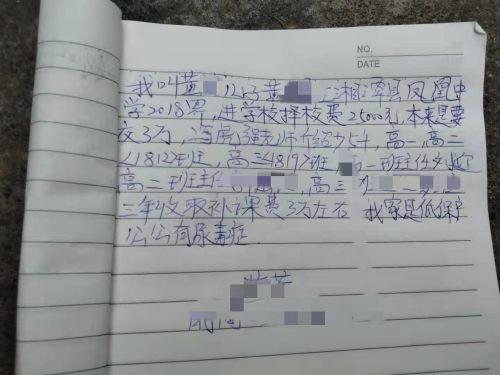 NO.
DATE
我叫黄 儿子黄 湘潭县凤凰中
学2018界,进学校择校费25000元,本来是要
交3万,冯虎强老师介绍少5千,高一,高二
1812班,高三1817班, 一班任
高二班主任 高三
三年收取补课费3万左右 我家是低保户
公公有尿毒症.